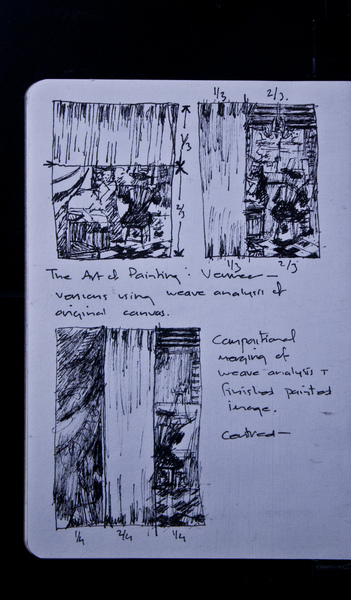 1/3 2/3.
1/3
2/3
1/3 2/3
The Art of Painting : Vermeer —
versions using weave analysis of
original canvas.
Compositional
merging of
weave analysis +
finished painted
image.
Centred —
1/4 2/4 1/4